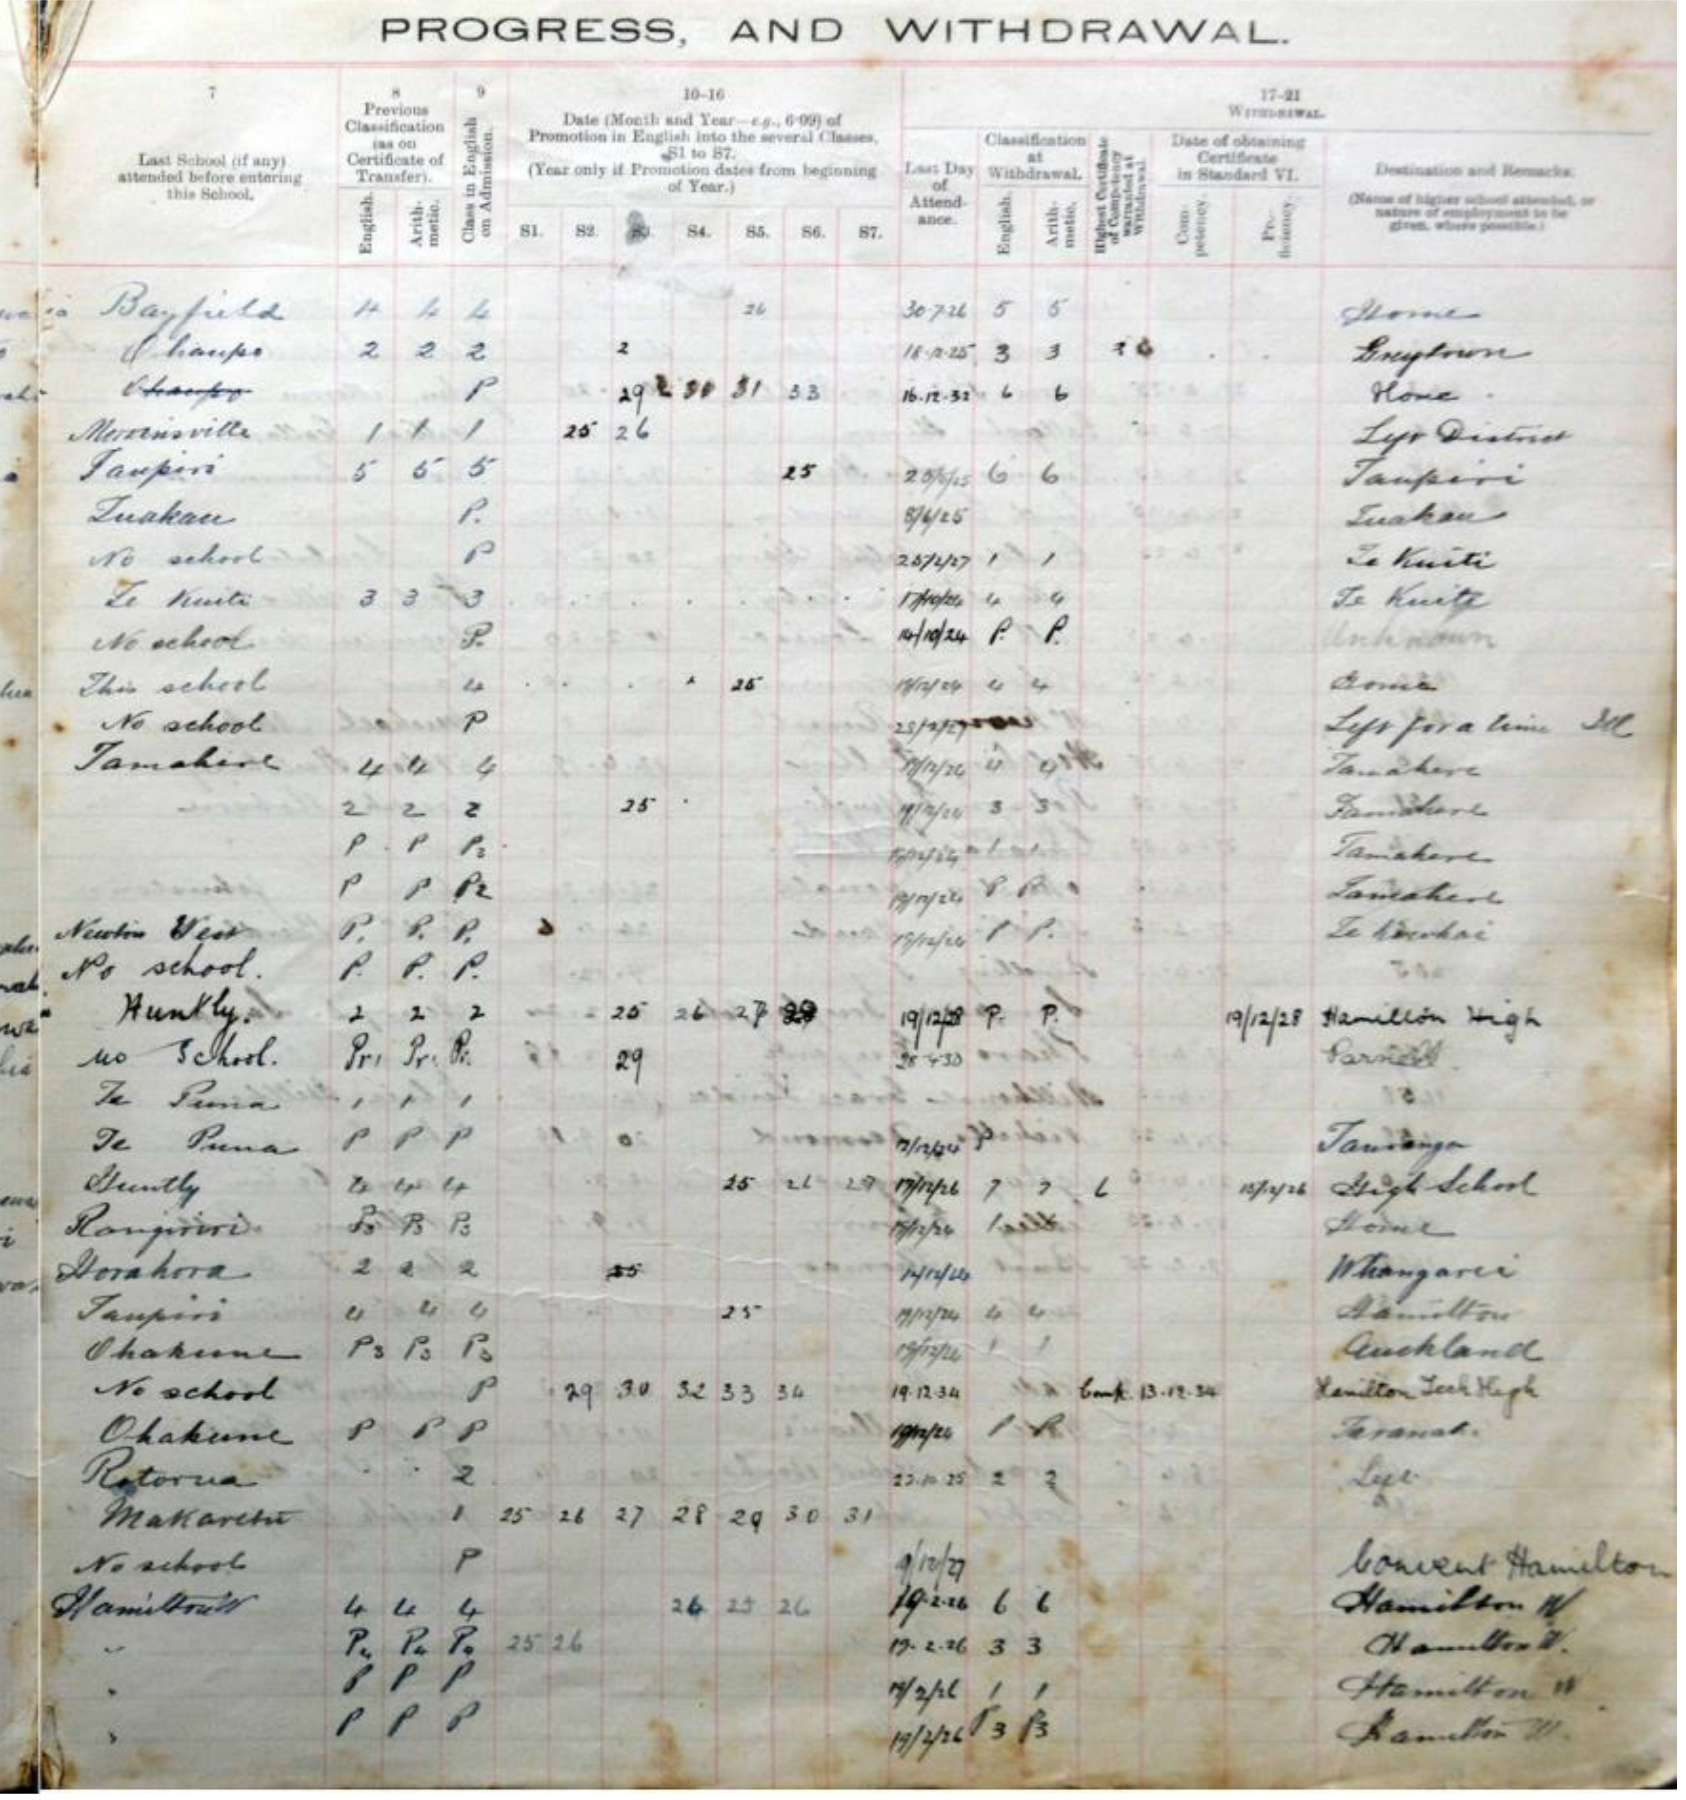 PROGRESS, AND WITHDRAWAL.
7 8 9 10-16 17-21
Last School (if any) attended before entering this School.
Previous Classification (as on Certificate of Transfer).
English. Arithmetic.
Class in English on Admission.
Date (Month and Year—e.g., 6·99) of Promotion in English into the several Classes, S1 to S7.
(Year only if Promotion dates from beginning of Year.)
S1. S2. S3. S4. S5. S6. S7.
WITHDRAWAL.
Last Day of Attendance.
Classification at Withdrawal.
English. Arithmetic.
Highest Certificate of Competency warranted at Withdrawal.
Date of obtaining Certificate in Standard VI.
Competency. Proficiency.
Destination and Remarks.
(Name of higher school attended, or nature of employment to be given, where possible.)
Bayfield 4 4 4 26 30.7.26 5 5 Home
Ohaupo 2 2 2 2 18.12.25 3 3 Greytown
Ohaupo P 29 30 31 33 16.12.32 6 6 Home
Morrinsville 1 1 1 25 26 Left District
Taupiri 5 5 5 25 6 6 Taupiri
Tuakau P. 8/6/25 Tuakau
No school P 25/2/27 1 1 Te Kuiti
Te Kuiti 3 3 3 17/10/24 4 4 Te Kuiti
No school P. 14/10/24 P. P. Unknown
This school 4 25 19/12/24 4 4 Home
No school P Left for a time Ill
Tamahere 4 4 4 19/12/24 4 4 Tamahere
2 2 2 25 19/12/24 3 3 Tamahere
P P P3 19/12/24 1 1 Tamahere
P P P2 19/12/24 P P Tamahere
Newton West P. P. P. 19/12/24 P P. Te Kowhai
No school. P. P. P.
Huntly. 2 2 2 25 26 27 28 19/12/28 P. P. 19/12/28 Hamilton High
no School. Pr1 Pr1 Pr. 29 28.4.30 Parnell
Te Puna 1 1 1
Te Puna P P P 19/12/24 P Tauranga
Huntly 4 4 4 25 26 27 17/12/26 7 7 6 15/12/26 High School
Rangiriri P3 P3 P3 19/12/24 1 Home
Horahora 2 2 2 25 19/12/24 Whangarei
Taupiri 4 4 4 25 19/12/24 4 4 Hamilton
Ohakune P3 P3 P3 19/12/24 1 1 Auckland
No school P 29 30 32 33 34 19.12.34 Comp. 13.12.34 Hamilton Tech High
Ohakune P P P 19/12/24 P P Taranaki
Rotorua 2 23.10.25 2 2 Left
Makaretu 1 25 26 27 28 29 30 31
No school P 9/12/27 Convent Hamilton
Hamilton W 4 4 4 24 25 26 19.2.26 6 6 Hamilton W
" P4 P4 P4 25 26 19.2.26 3 3 Hamilton W.
" P P P 19/2/26 1 1 Hamilton W
" P P P 19/2/26 P3 P3 Hamilton W.